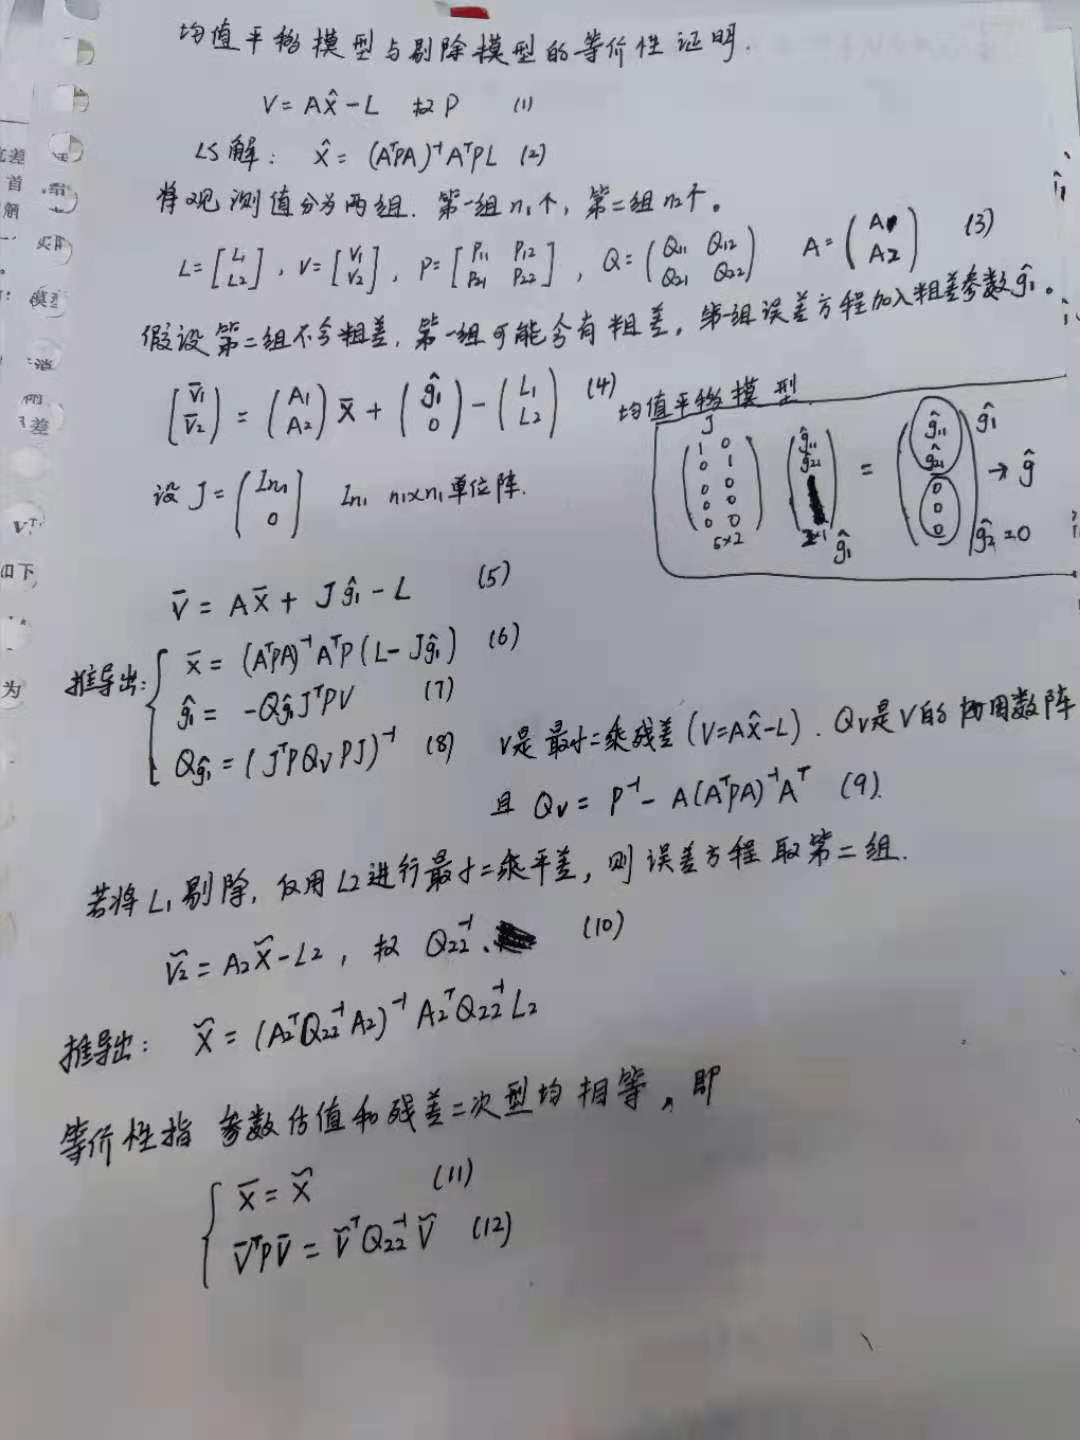 均值平移模型与剔除模型的等价性证明.
V = AX̂ - L 权P (1)
LS解: X̂ = (AᵀPA)⁻¹AᵀPL (2)
将观测值分为两组. 第一组n₁个, 第二组n₂个。
L = [L₁ L₂], V = [V₁ V₂], P = [P₁₁ P₁₂ P₂₁ P₂₂], Q = (Q₁₁ Q₁₂ Q₂₁ Q₂₂) A = (A₁ A₂) (3)
假设第二组不含粗差, 第一组可能含有粗差。第一组误差方程加入粗差参数ĝ₁。
[V̄₁ V̄₂] = (A₁ A₂) X̄ + (ĝ₁ 0) - (L₁ L₂) (4)
均值平移模型
J
(1 0 0 1 0 0 0 0 0 0) (ĝ₁₁ ĝ₂₁) = (ĝ₁₁ ĝ₂₁ 0 0 0) ĝ₁ → ĝ
5×2 ĝ₁ ĝ₂=0
设 J = (In₁ 0) In₁ n₁×n₁单位阵.
V̄ = AX̄ + Jĝ₁ - L (5)
推导出:
X̄ = (AᵀPA)⁻¹AᵀP(L - Jĝ₁) (6)
ĝ₁ = -Qĝ₁JᵀPV (7)
Qĝ₁ = (JᵀPQvPJ)⁻¹ (8)
V是最小二乘残差(V=AX̂-L). Qv是V的协因数阵
且 Qv = P⁻¹ - A(AᵀPA)⁻¹Aᵀ (9).
若将L₁剔除, 仅用L2进行最小二乘平差, 则误差方程取第二组.
Ṽ₂ = A₂X̃ - L₂, 权 Q₂₂⁻¹. (10)
推导出: X̃ = (A₂ᵀQ₂₂⁻¹A₂)⁻¹A₂ᵀQ₂₂⁻¹L₂
等价性指 参数估值和残差二次型均相等, 即
X̄ = X̃ (11)
V̄ᵀPV̄ = ṼᵀQ₂₂⁻¹Ṽ (12)